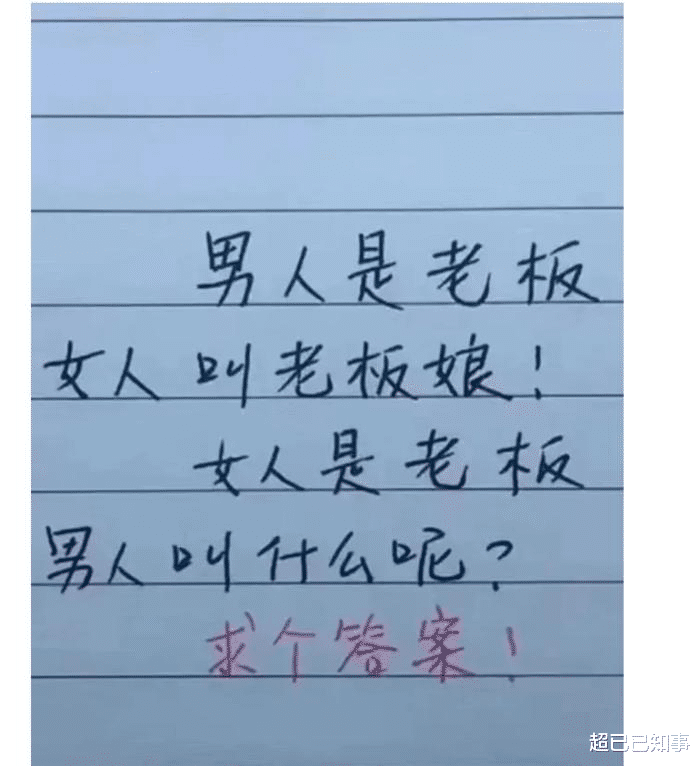 男人是老板
女人叫老板娘!
女人是老板
男人叫什么呢?
求个答案!
超已已知事